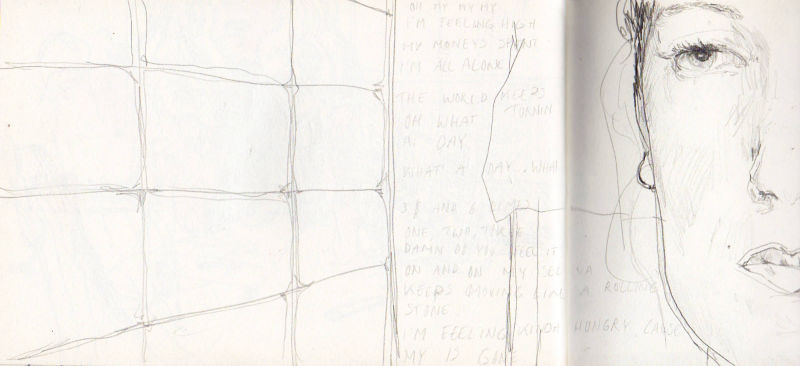 OH MY MY MY
I'M FEELING HIGH
MY MONEYS SPENT
I'M ALL ALONE
THE WORLD KEEPS
TURNIN
OH WHAT
A DAY
WHAT A DAY. WHAT
AND
ONE, TWO, THREE
DAMN DO YOU FEEL IT
ON AND ON MY
KEEPS MOVING LIKE A ROLLING
STONE
I'M FEELING KINDA HUNGRY CAUSE
MY IS GONE